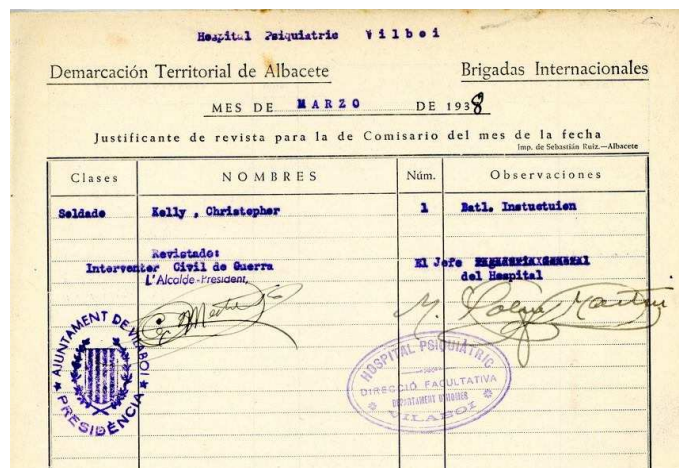 Hospital Psiquiatric Vilboi
Demarcación Territorial de Albacete
Brigadas Internacionales
MES DE MARZO DE 1938
Justificante de revista para la de Comisario del mes de la fecha
Imp. de Sebastián Ruiz.—Albacete
Clases NOMBRES Núm. Observaciones
Soldado Kelly , Christopher 1 Batl. Instuctuien
Revistado:
Interventer Civil de Guerra
L'Alcalde-President,
El Jefe
del Hospital
AJUNTAMENT DE VILABOI
PRESIDÈNCIA
HOSPITAL PSIQUIÀTRIC
DIRECCIÓ FACULTATIVA
VILABOI